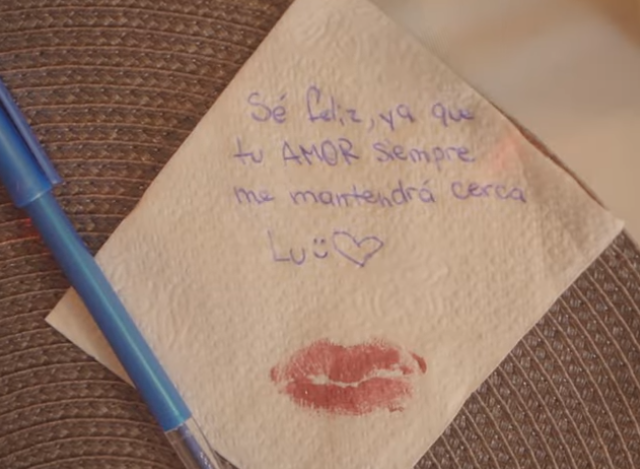 Sé feliz, ya que
tu AMOR siempre
me mantendrá cerca
Lu